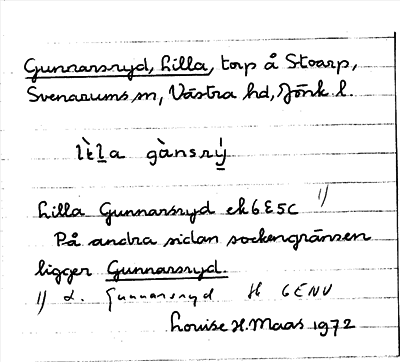 Gunnarsryd, Lilla, torp å Stoarp,
Svenarums sn, Västra hd, Jönk. l.
lìt̲l̲a gànsrý̲
Lilla Gunnarsryd ek 6E5c 1)
På andra sidan sockengränsen
ligger Gunnarsryd.
1) L. Gunnarsryd H GENV
Louise H. Maas 1972